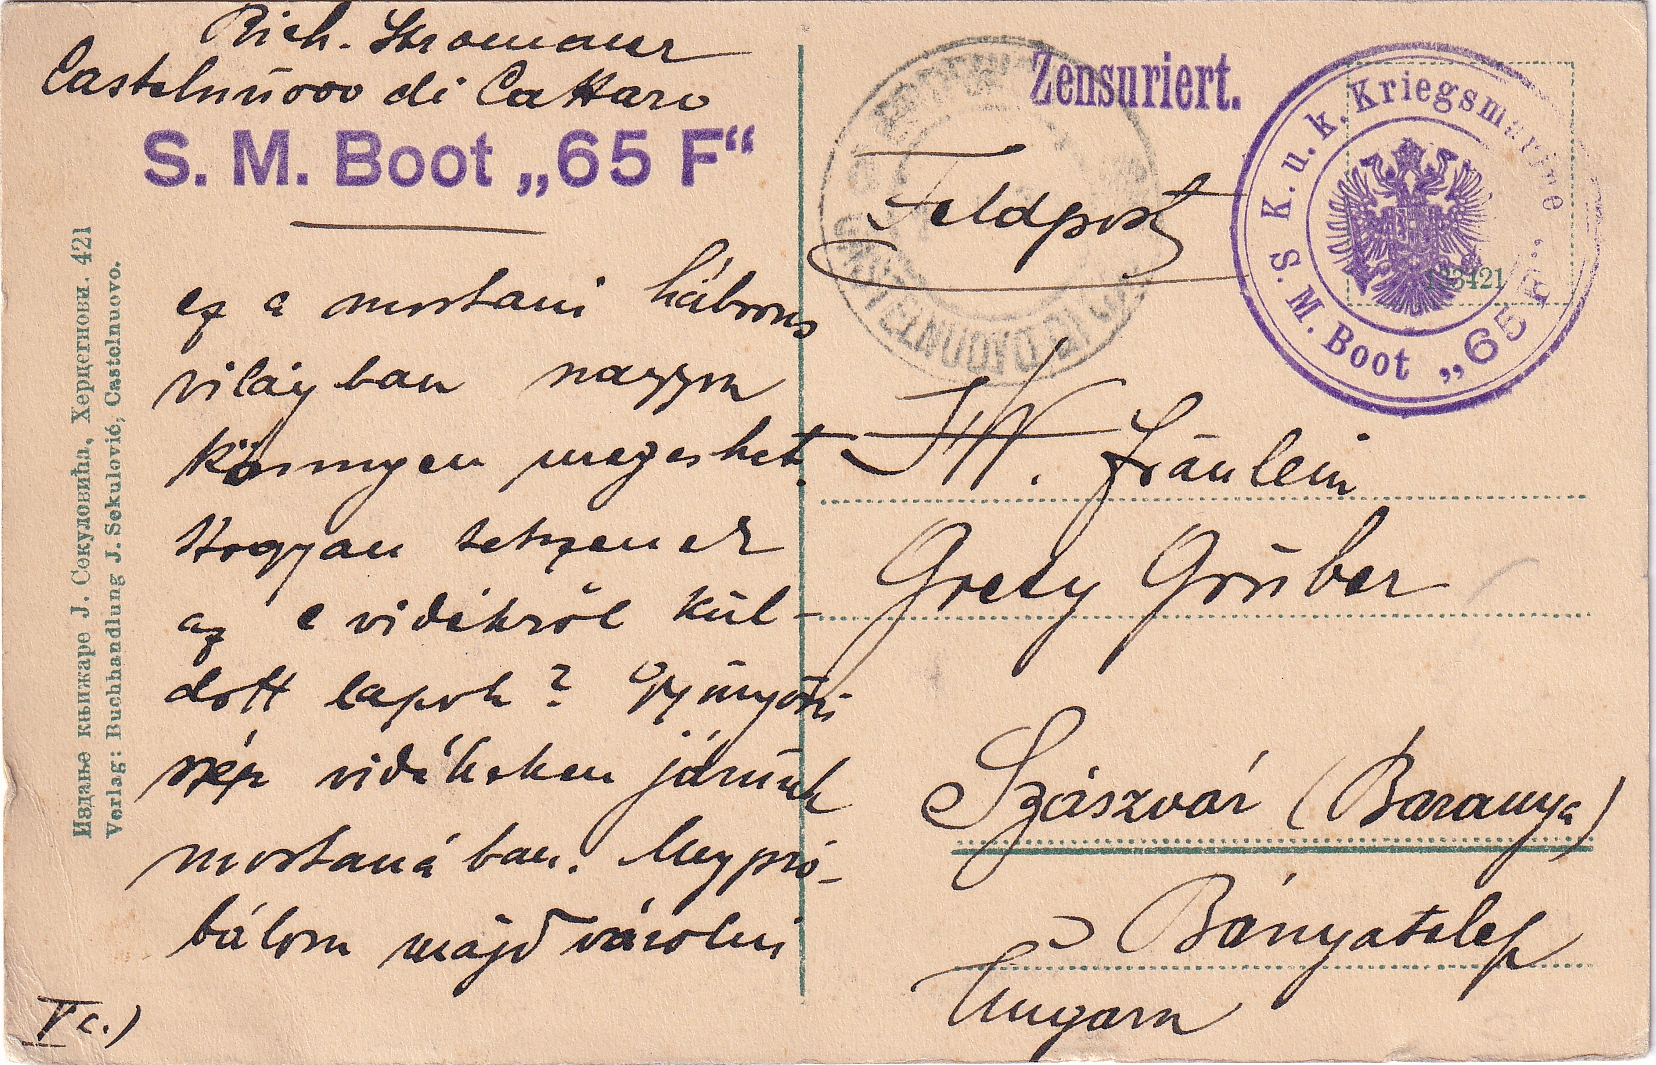 Rich. Stromauer
Castelnuovo di Cattaro
S. M. Boot „65 F“
ez a mostani háborus
világban nagyon
könnyen megeshet.
Hogyan tetszenek
az e vidékről kül-
dött lapok? Gyönyörü
szép vidékeken járunk
mostanában. Megpró-
bálom majd vázolni
Vc.)
Издање књижаре J. Секуловића, Херцегнови. 421
Verlag: Buchhandlung J. Sekulović, Castelnuovo.
Zensuriert.
Feldpost
CASTELNUOVO
K. u. k. Kriegsmarine
S. M. Boot „65 F“
Fräulein
Grety Gruber
Szászvár (Baranya)
Bányatelep
Ungarn